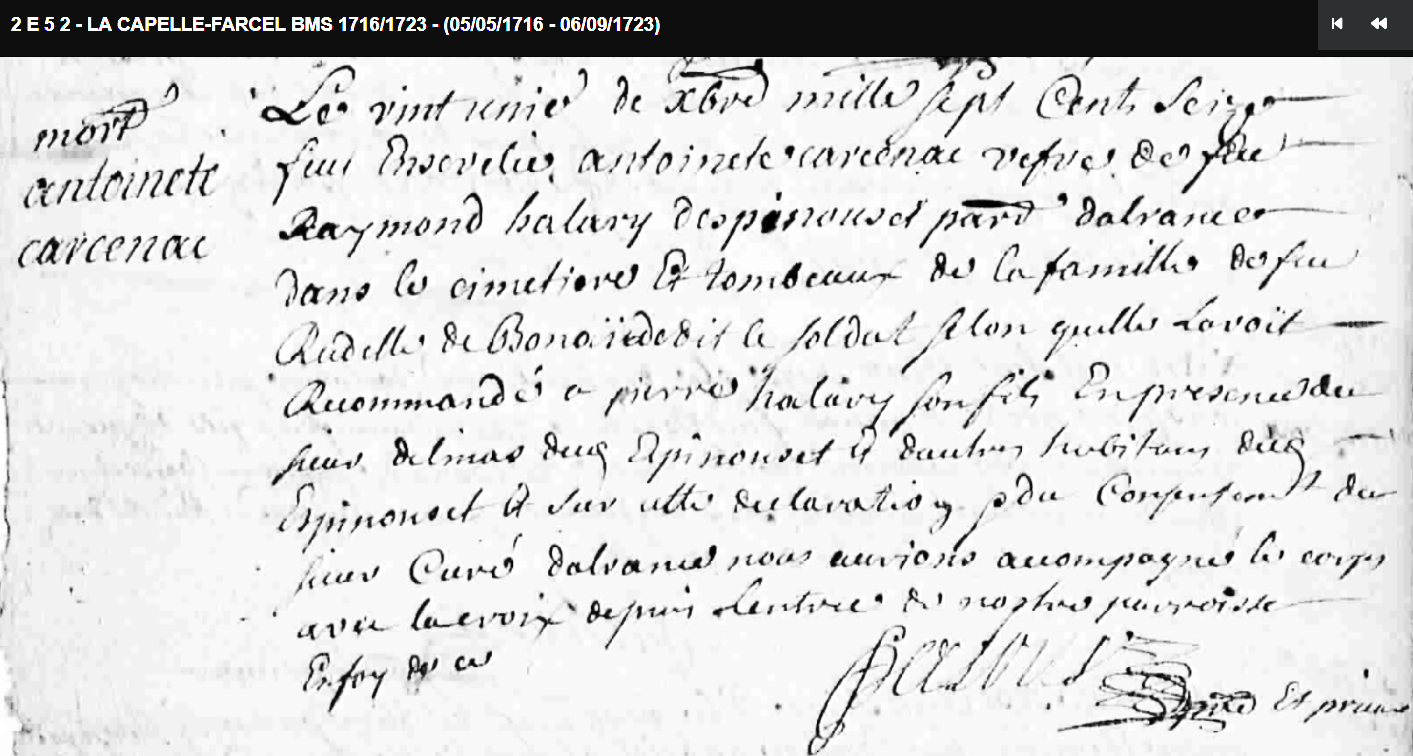 2 E 5 2 - LA CAPELLE-FARCEL BMS 1716/1723 - (05/05/1716 - 06/09/1723)
mort
antoinete
carcenac
Le vint unie de xbre mille sept Cent Seize
fut Ensevelie antoinete carcenac vefve de feu
Raymond halary despinouset parr dalrance
dans le cimetiere Et tombeaux de la famille de feu
Rudelle de dit le soldat selon quelle Lavoit
Recommandé a pierre halary son fils En presence du
sieur delmas dud Espinouset Et dautres habitans dud
Espinouset Et sur cette declaration du Consentemt du
sieur Curé dalrance nous aurions accompagné le corps
avec la croix depuis Lentree de nostre parroisse
En foy de ce
Et prieur